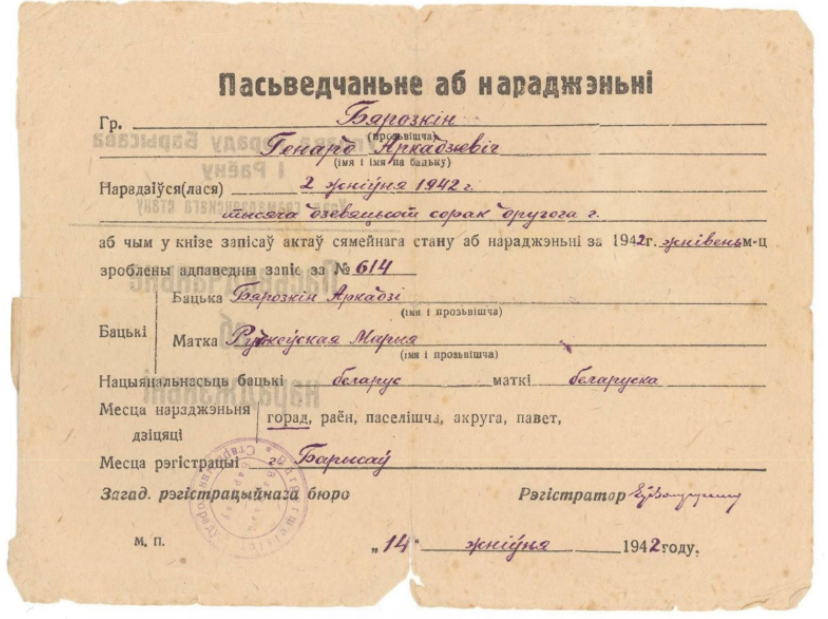 Пасьведчаньне аб нараджэньні
Гр. Бярозкін
(прозьвішча)
Генард Аркадзевіч
(імя і імя па бацьку)
Нарадзіўся(лася) 2 жніўня 1942 г.
тысяча дзевяцьсот сорак другога г.
аб чым у кнізе запісаў актаў сямейнага стану аб нараджэньні за 1942г. жнівень м-ц
зроблены адпаведны запіс за № 614
Бацькі
Бацька Бярозкін Аркадзі
(імя і прозьвішча)
Матка Мария
(імя і прозьвішча)
Нацыянальнасьць бацькі беларус маткі беларуска
Месца нараджэньня дзіцяці
горад, раён, паселішча, акруга, павет,
Месца рэгістрацыі г. Барысаў
Загад. рэгістрацыйнага бюро Рэгістратор
М. П. „14" жніўня 1942 году.